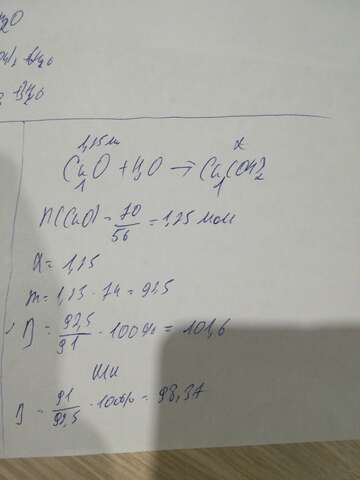 H₂O
H₂O
1,25м x
CaO + H₂O → Ca(OH)₂
1 1
n(CaO) = 70/56 = 1,25 моль
x = 1,25
m = 1,25 · 74 = 92,5
η = 92,5/91 · 100% = 101,6
Или
η = 91/92,5 · 100% = 98,37